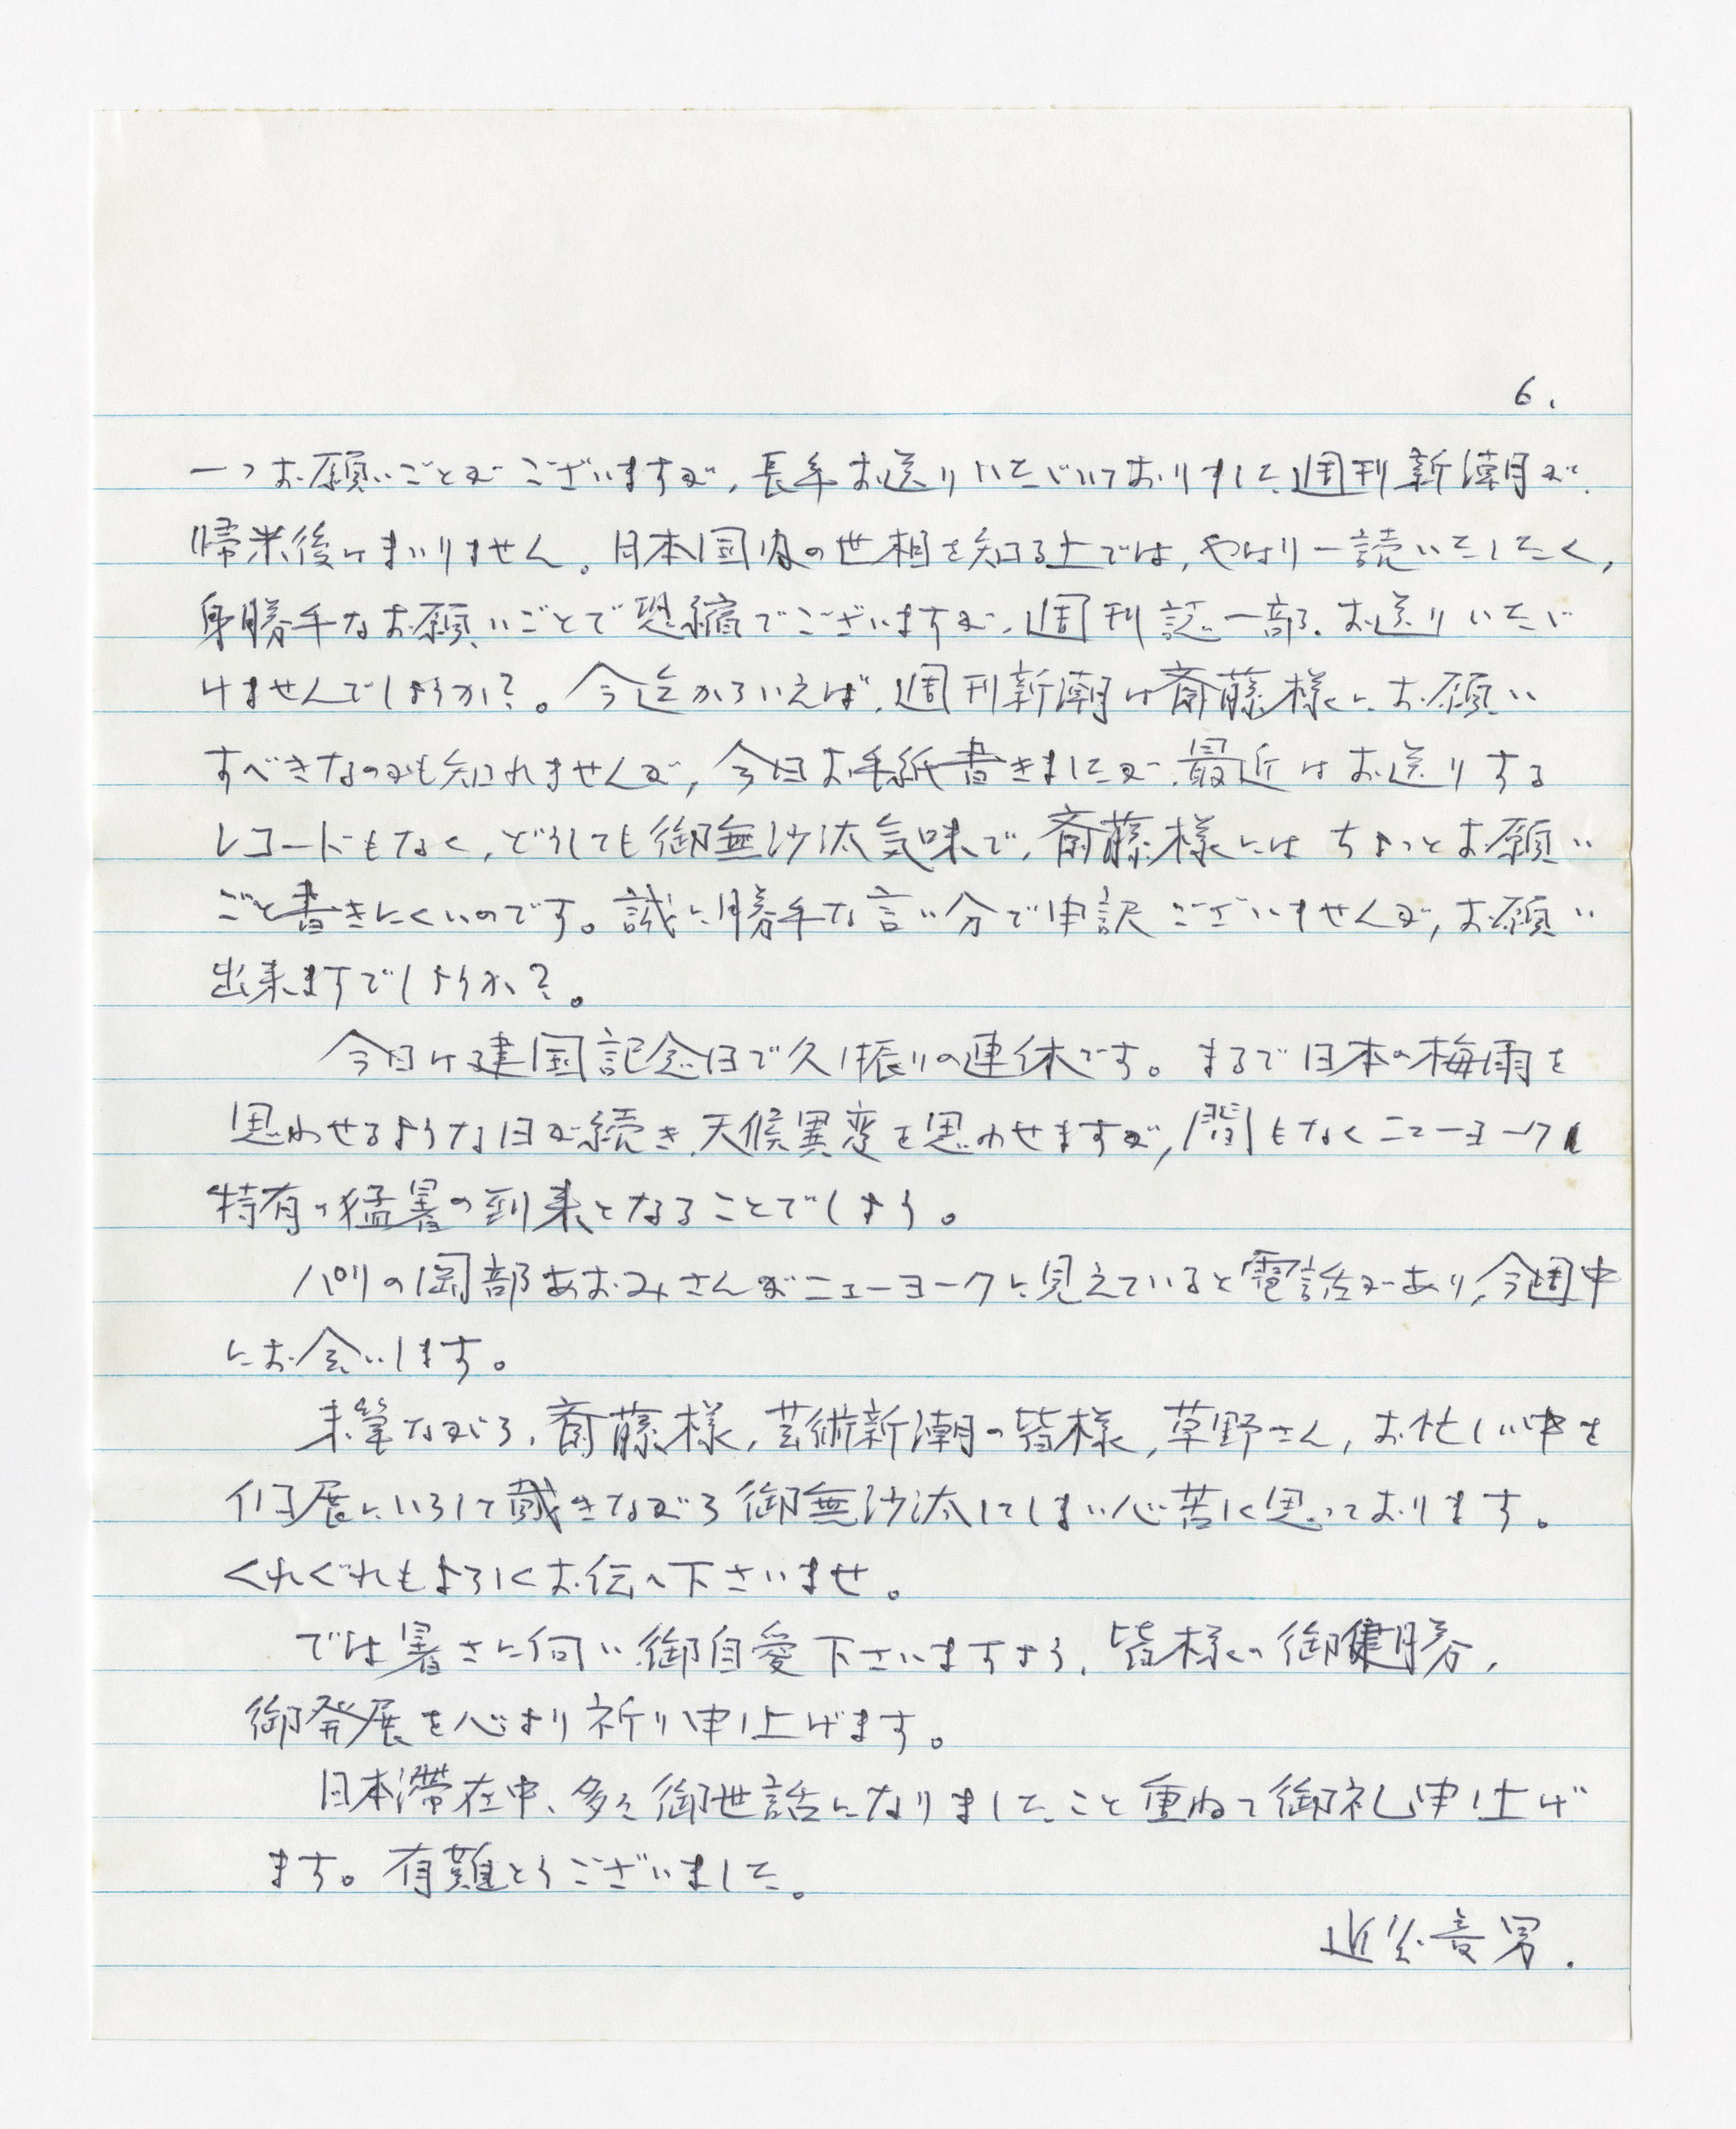 6.
一つお願いごとがございますが、長年お送りいたゞいておりました週刊新潮が、
帰米後はまいりません。日本国内の世相を知る上では、やはり一読いたしたく、
身勝手なお願いごとで恐縮でございますが、週刊誌一部、お送りいたゞ
けませんでしょうか?。今迄からいえば、週刊新潮は斎藤様にお願い
すべきなのかも知れませんが、今日お手紙書きましたが、最近はお送りする
レコードもなく、どうしても御無沙汰気味で、斎藤様にはちょっとお願い
ごと書きにくいのです。誠に勝手な言い分で申訳ございませんが、お願い
出来ますでしょうか?。
今日は建国記念日で久し振りの連休です。まるで日本の梅雨を
思わせるような日が続き、天候異変を思わせますが、間もなくニューヨーク
特有の猛暑の到来となることでしょう。
パリの岡部あおみさんがニューヨークに見えていると電話があり、今週中
にお会いします。
末筆ながら、斎藤様、芸術新潮の皆様、草野さん、お忙しい中を
個展にいらして戴きながら御無沙汰してしまい心苦しく思っております。
くれぐれもよろしくお伝へ下さいませ。
では暑さに向い、御自愛下さいますよう、皆様の御健勝、
御発展を心より祈り申し上げます。
日本滞在中、多々御世話になりましたこと重ねて御礼申し上げ
ます。有難とうございました。
近
男.